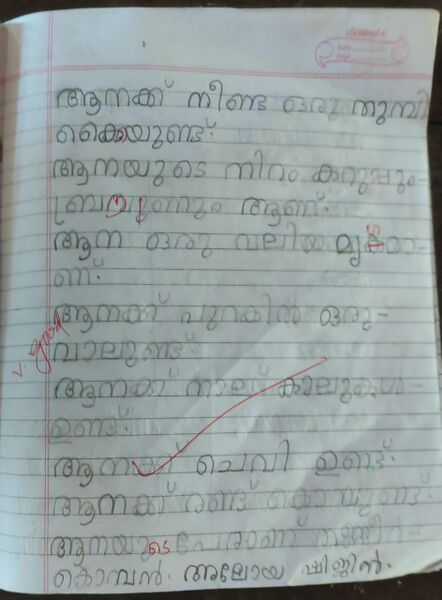 classmate
Date
Page
ആനക്ക് നീണ്ട ഒരു തുമ്പി
കൈയുണ്ട്.
ആനയുടെ നിറം കറുപ്പും
ബ്രൗണും ആണ്.
ആന ഒരു വലിയ മൃഗമാ-
ണ്.
ആനക്ക് പുറകിൽ ഒരു-
വാലുണ്ട്.
v. good
ആനക്ക് നാല് കാലുകൾ-
ഉണ്ട്.
ആനക്ക് ചെവി ഉണ്ട്.
ആനക്ക് രണ്ട് കൊമ്പുണ്ട്.
ആനയുടെ പേരാണ്
കൊമ്പൻ. അലോയ ഷിജിൻ.